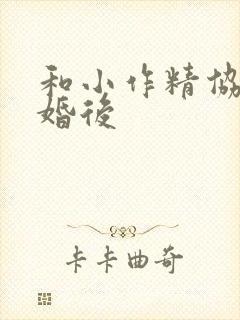 和小作精協
婚後
卡卡曲奇